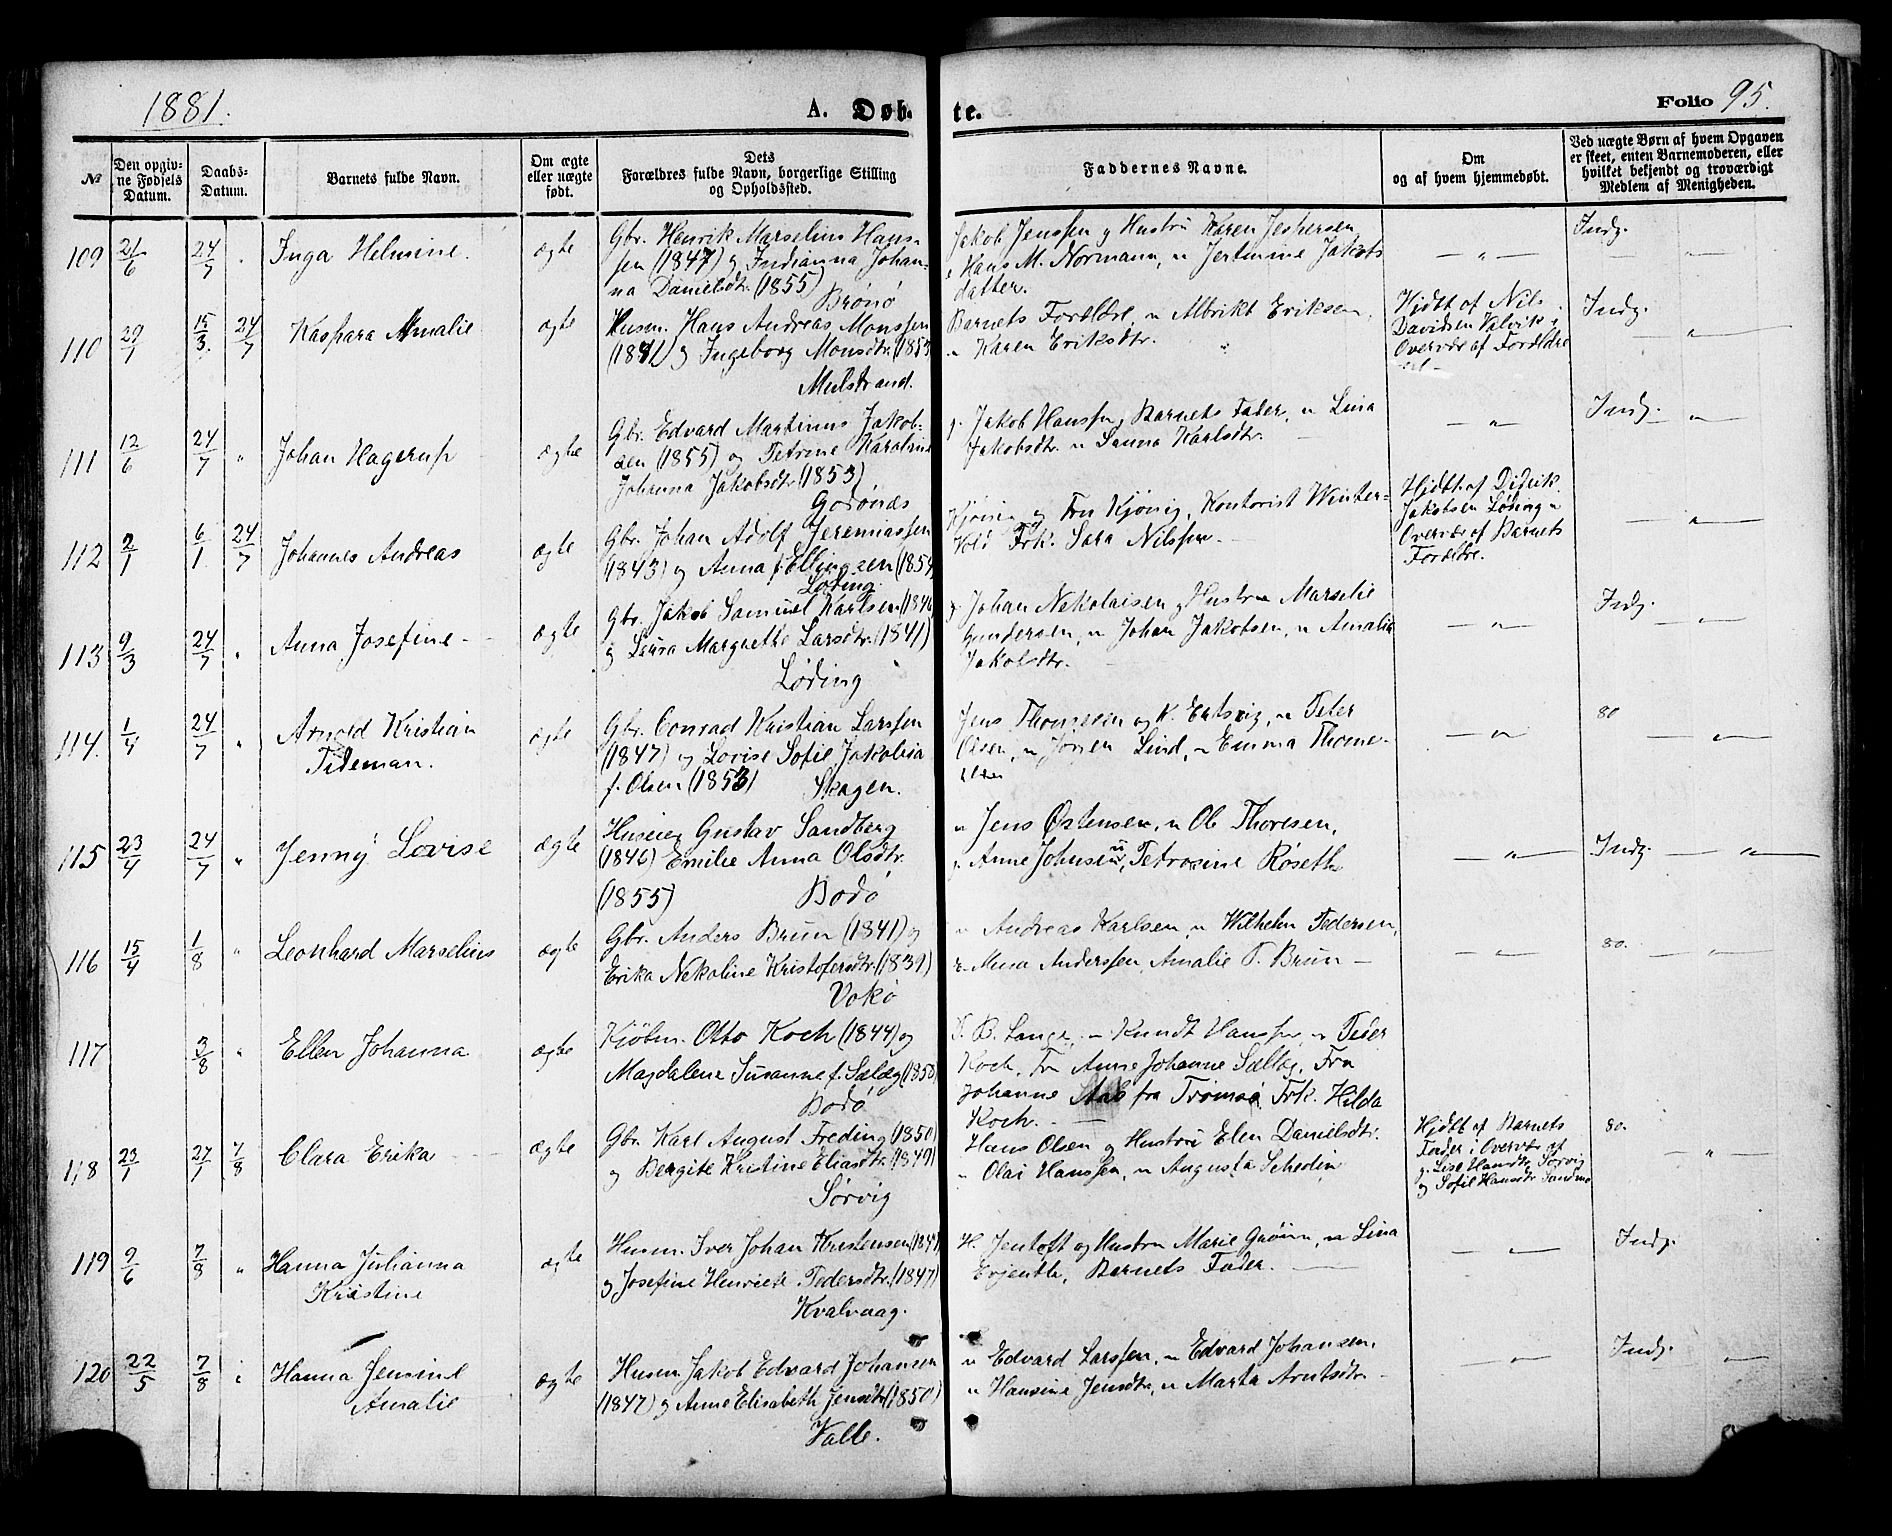 1881.
A. Døb-
te.
Folio 95.
№
Den opgiv-
ne Fødsels
Datum.
Daabs-
Datum.
Barnets fulde Navn.
Om ægte
eller uægte
født.
Dets
Forældres fulde Navn, borgerlige Stilling
og Opholdssted.
Faddernes Navne.
Om
og af hvem hjemmedøbt.
Ved uægte Børn af hvem Opgaven
er skeet, enten Barnemoderen, eller
hvilket bekjendt og troværdigt
Medlem af Menigheden.
109 21/6 24/7 " Inga Helmine. ægte
Gbr. Henrik Marselius Hans-
sen (1847) og Indianna Johan-
na Danielsdtr. (1855)
Brönö
Jakob Jenssen og Hustru Karen Jespersen
Hans M. Normann, u Jertinine Jakobs
datter.
— " —
Indg.
— " —
110 29/1 15/3. 24/7 Kaspara Amalie ægte
Husm. Hans Andreas Monssen
(1841) og Ingeborg Monsdtr. (1853
Mulstrand.
Barnets Forældre, u Albrikt Eriksen,
u Karen Eriksdtr.
Hjdbt af Nils
Davidsen Valvik i
Overvær af Forældre
Indg.
— " —
111 12/6 24/7 " Johan Hagerup ægte
Gbr. Edvard Martinus Jakob-
sen (1855) og Petrine Karoline
Johanna Jakobsdtr (1853)
Godönæs
g. Jakob Hanssen, Barnets Fader, u Lina
Jakobsdtr u Sanna Karlsdtr.
— " —
Indg. — " —
112 2/1 6/1 24/7 Johannes Andreas ægte
Gbr. Johan Adolf Jeremiassen
(1843) og Anna f. Ellingsen (1854
Löding.
Kjönig og Fru Kjönig, Kontorist Winter-
Vold Frk. Sara Nilssen. —
Hjdbt af Didrik
Jakobsen Löding i
Overvær af Barnets
Forældre.
— " —
113 9/3 24/7 " Anna Josefine — ægte
Gbr. Jakob Samuel Karlsen (1846
og Laura Margrethe Larsdtr. (1841)
Löding
g. Johan Nekolaisen og Hustru Marselie
Gundersen, u Johan Jakobsen, u Amalia
Jakobsdtr. —
— " —
Indg.
— " —
114. 1/4 24/7 " Arnold Kristian
Tideman. ægte
Gbr. Conrad Kristian Larssen
(1847) og Lovise Sofie Jakobina
f. Olsen (1853)
Skagen.
Jens Thomesen og K. Ertsvig, u Peter
Olsen, u Jörgen Lind, u Emma Thome-
— " —
80
— " —
115 23/4 24/7 " Jenny Lovise ægte
Huseier Gustav Sandberg
(1846) Emilie Anna Olsdtr.
(1855)
Bodö
u Jens Östensen, u Ole Thoresen,
g. Anne Johnsen, Petrosine Röseth
— " —
Indg. — " —
116 15/4 1/8 " Leonhard Marselius ægte
Gbr. Anders Brun (1841) og
Erika Nekoline Kristofersdtr. (1839)
Vokö
u Andreas Karlsen, u Wilhelm Pedersen,
Anna Anderssen, Amalie P. Brun —
— " —
80.
— " —
117 3/8 " Ellen Johanna ægte
Kjöbm. Otto Koch (1844) og
Magdalene Susanne f. Sælæg (1850
Bodö
B. Lange, — Kundt Hanssen, u Peder
Koch, Fr Anne Johanne Sælæg, Fru
Johanne fra Tromsö, Frk. Hilda
Koch. —
118 23/1 27/7 7/8 Clara Erika — ægte
Gbr. Karl August Freding (1850)
og Bergite Kristine Eliasdtr. (1849)
Sörvig
Hans Olsen og Hustru Elen Danielsdtr.
u Olai Hanssen, u Augusta Schedin
Hjdbt af Barnets
Fader i Overvær af
g. Lise Hansdtr. Sörvig
og Sofie Hansdtr Sandmo
80.
— " —
119 9/6 7/8 " Hanna Julianna
Kristine ægte
Husm. Iver Johan Kristensen (1847)
og Josefine Henriette Pedersdtr. (1847)
Kvalvaag.
H. Jentoft og Hustru Marie Gröen, u Lina
Evjenth, Barnets Fader. —
— " —
Indg.
120 22/5 7/8 " Hanna Jensine
Amalie ægte
Husm Jakob Edvard Johansen
(1847) og Anne Elisabeth Jensdtr (1850)
Valle.
u Edvard Larssen, u Edvard Johansen,
u Hansine Jensdtr, u Marta Arntsdtr. —
— " —
Indg.
— " —